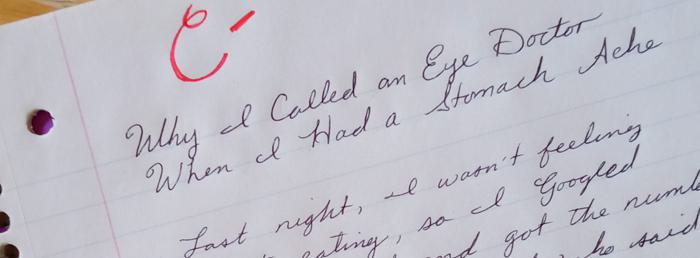 C-
Why I Called an Eye Doctor
When I Had a Stomach Ache
Last night, I wasn't feeling
eating, so I Googled
and got the
he said